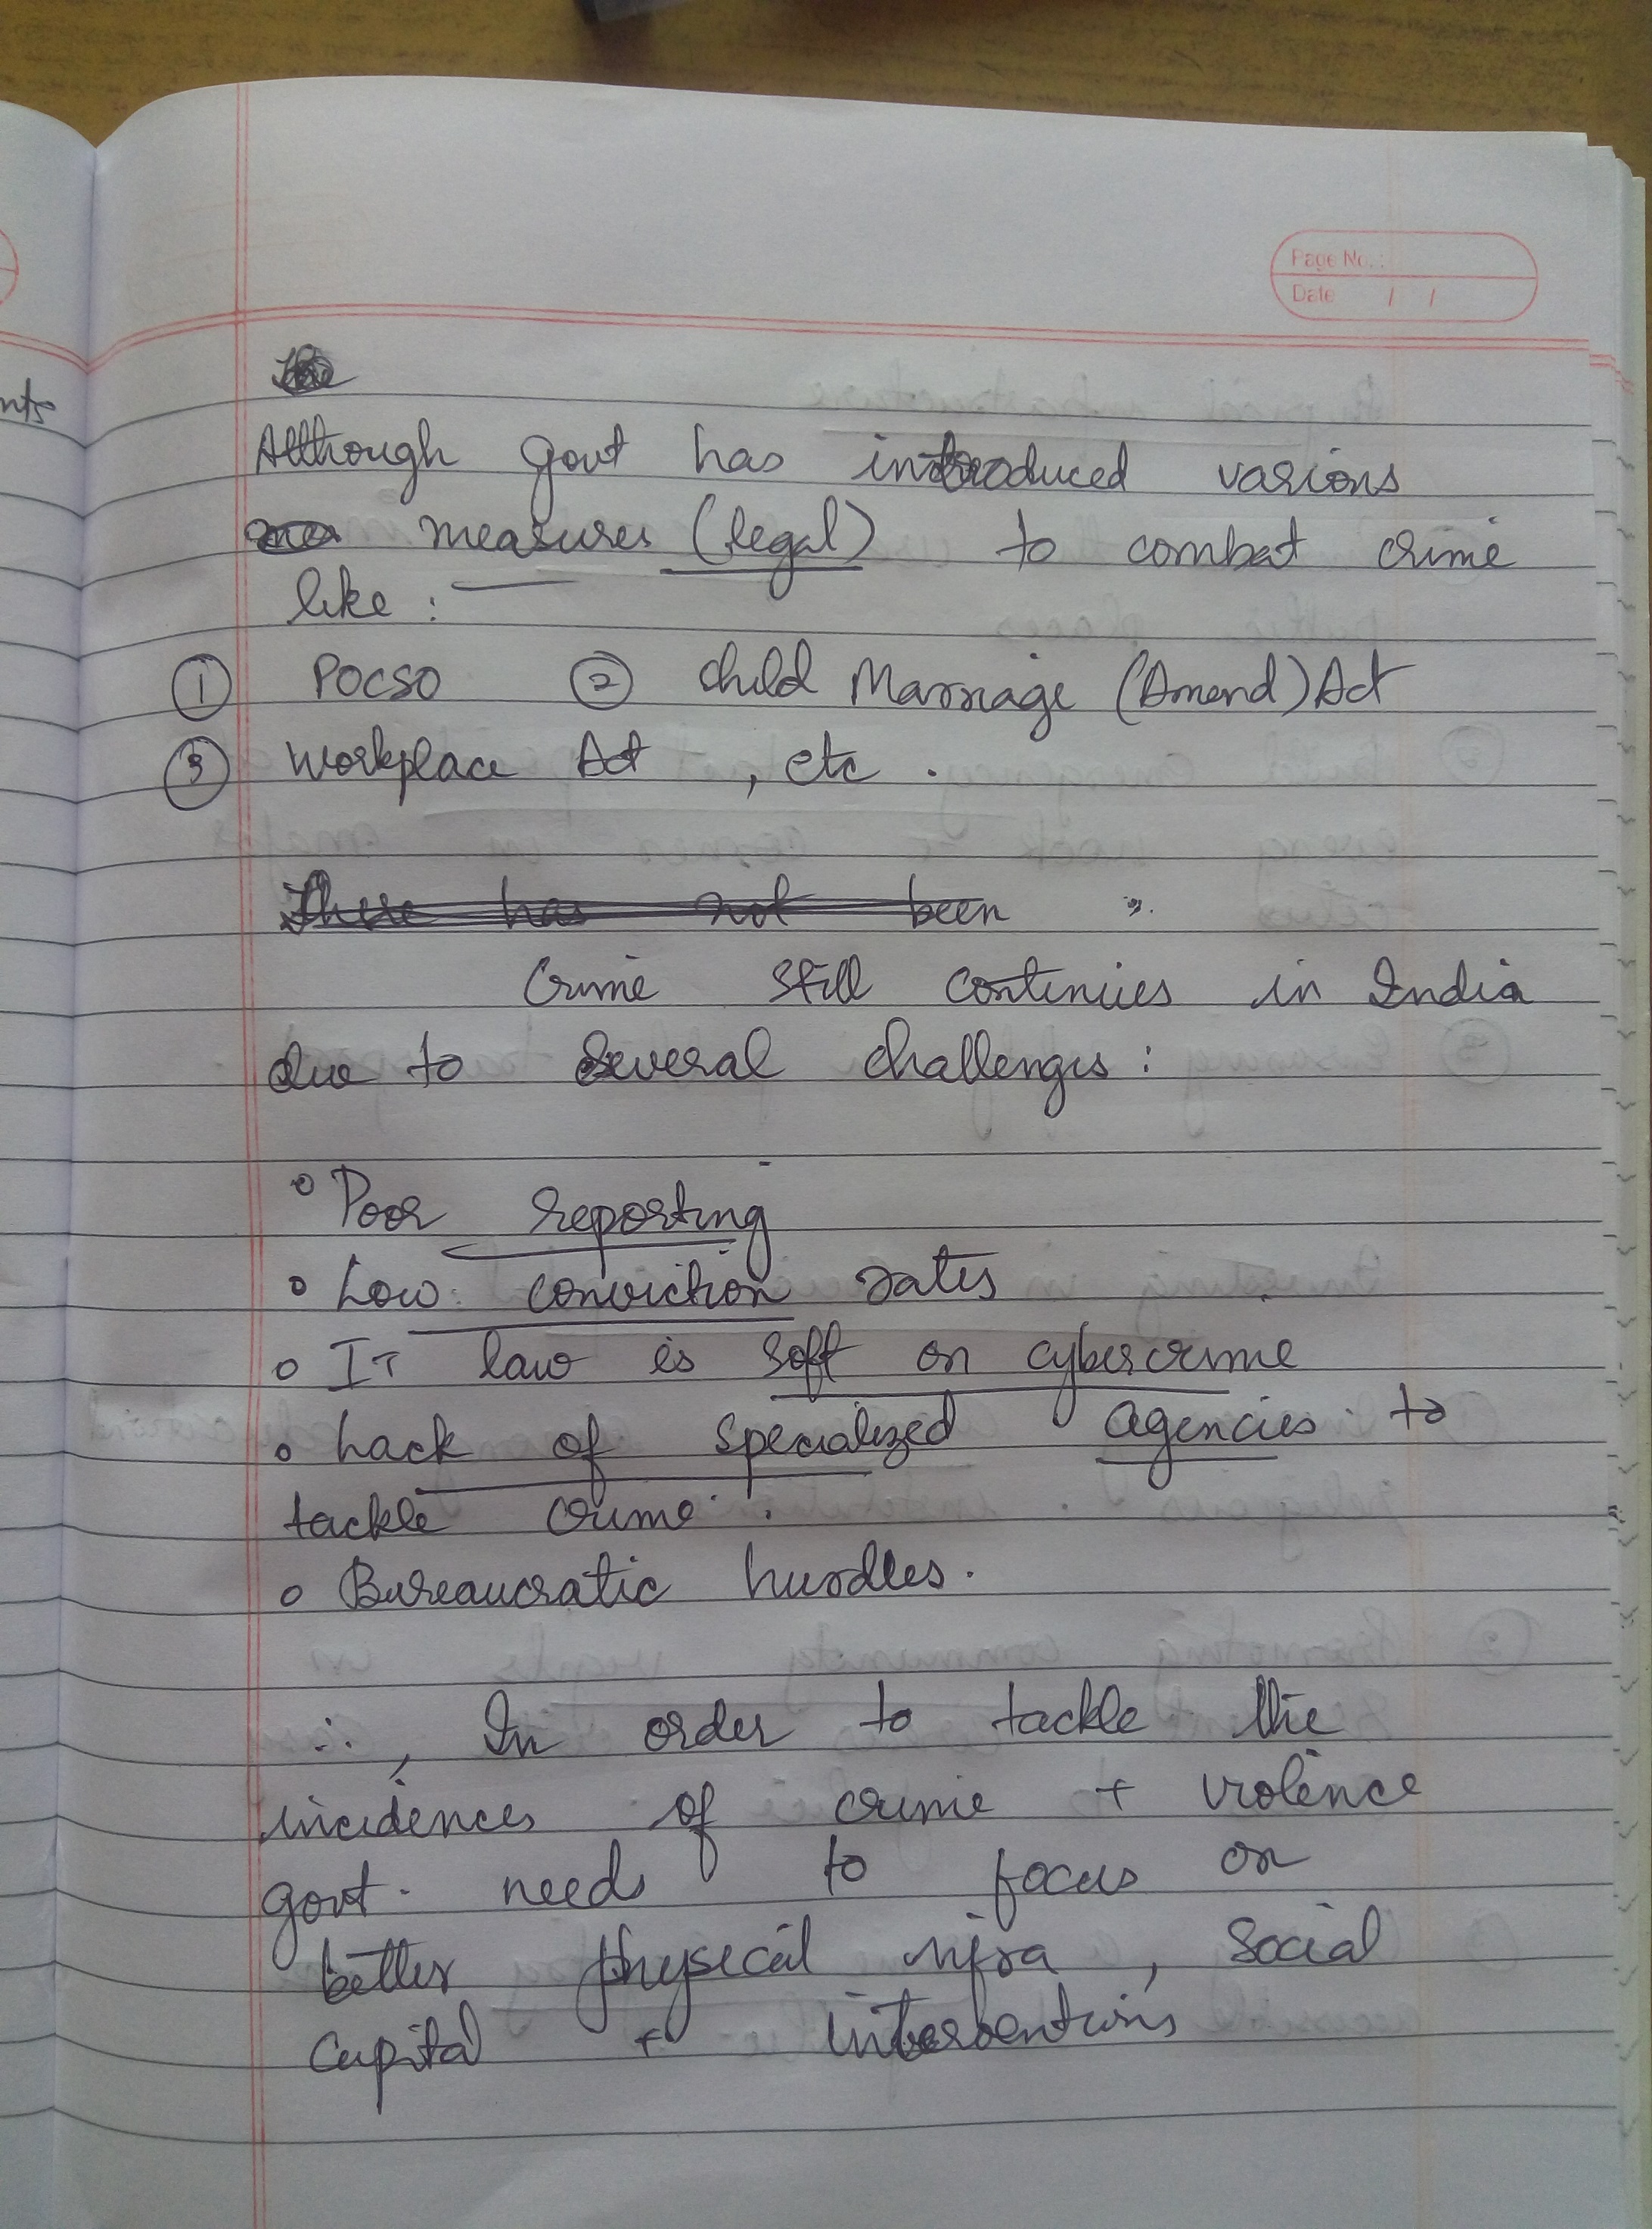 nts
Page No. :
Date / /
Although govt has introduced various
measures (legal) to combat crime
like :
① POCSO ② Child Marriage (Amend) Act
③ Workplace Act , etc .
There has not been
Crime still continues in India
due to several challenges :
o Poor reporting
o Low conviction rates
o IT law is soft on cybercrime
o Lack of specialized agencies to
tackle crime .
o Bureaucratic hurdles .
∴ , In order to tackle the
incidences of crime + violence
govt . needs to focus on
better physical infra , social
capital + interventions